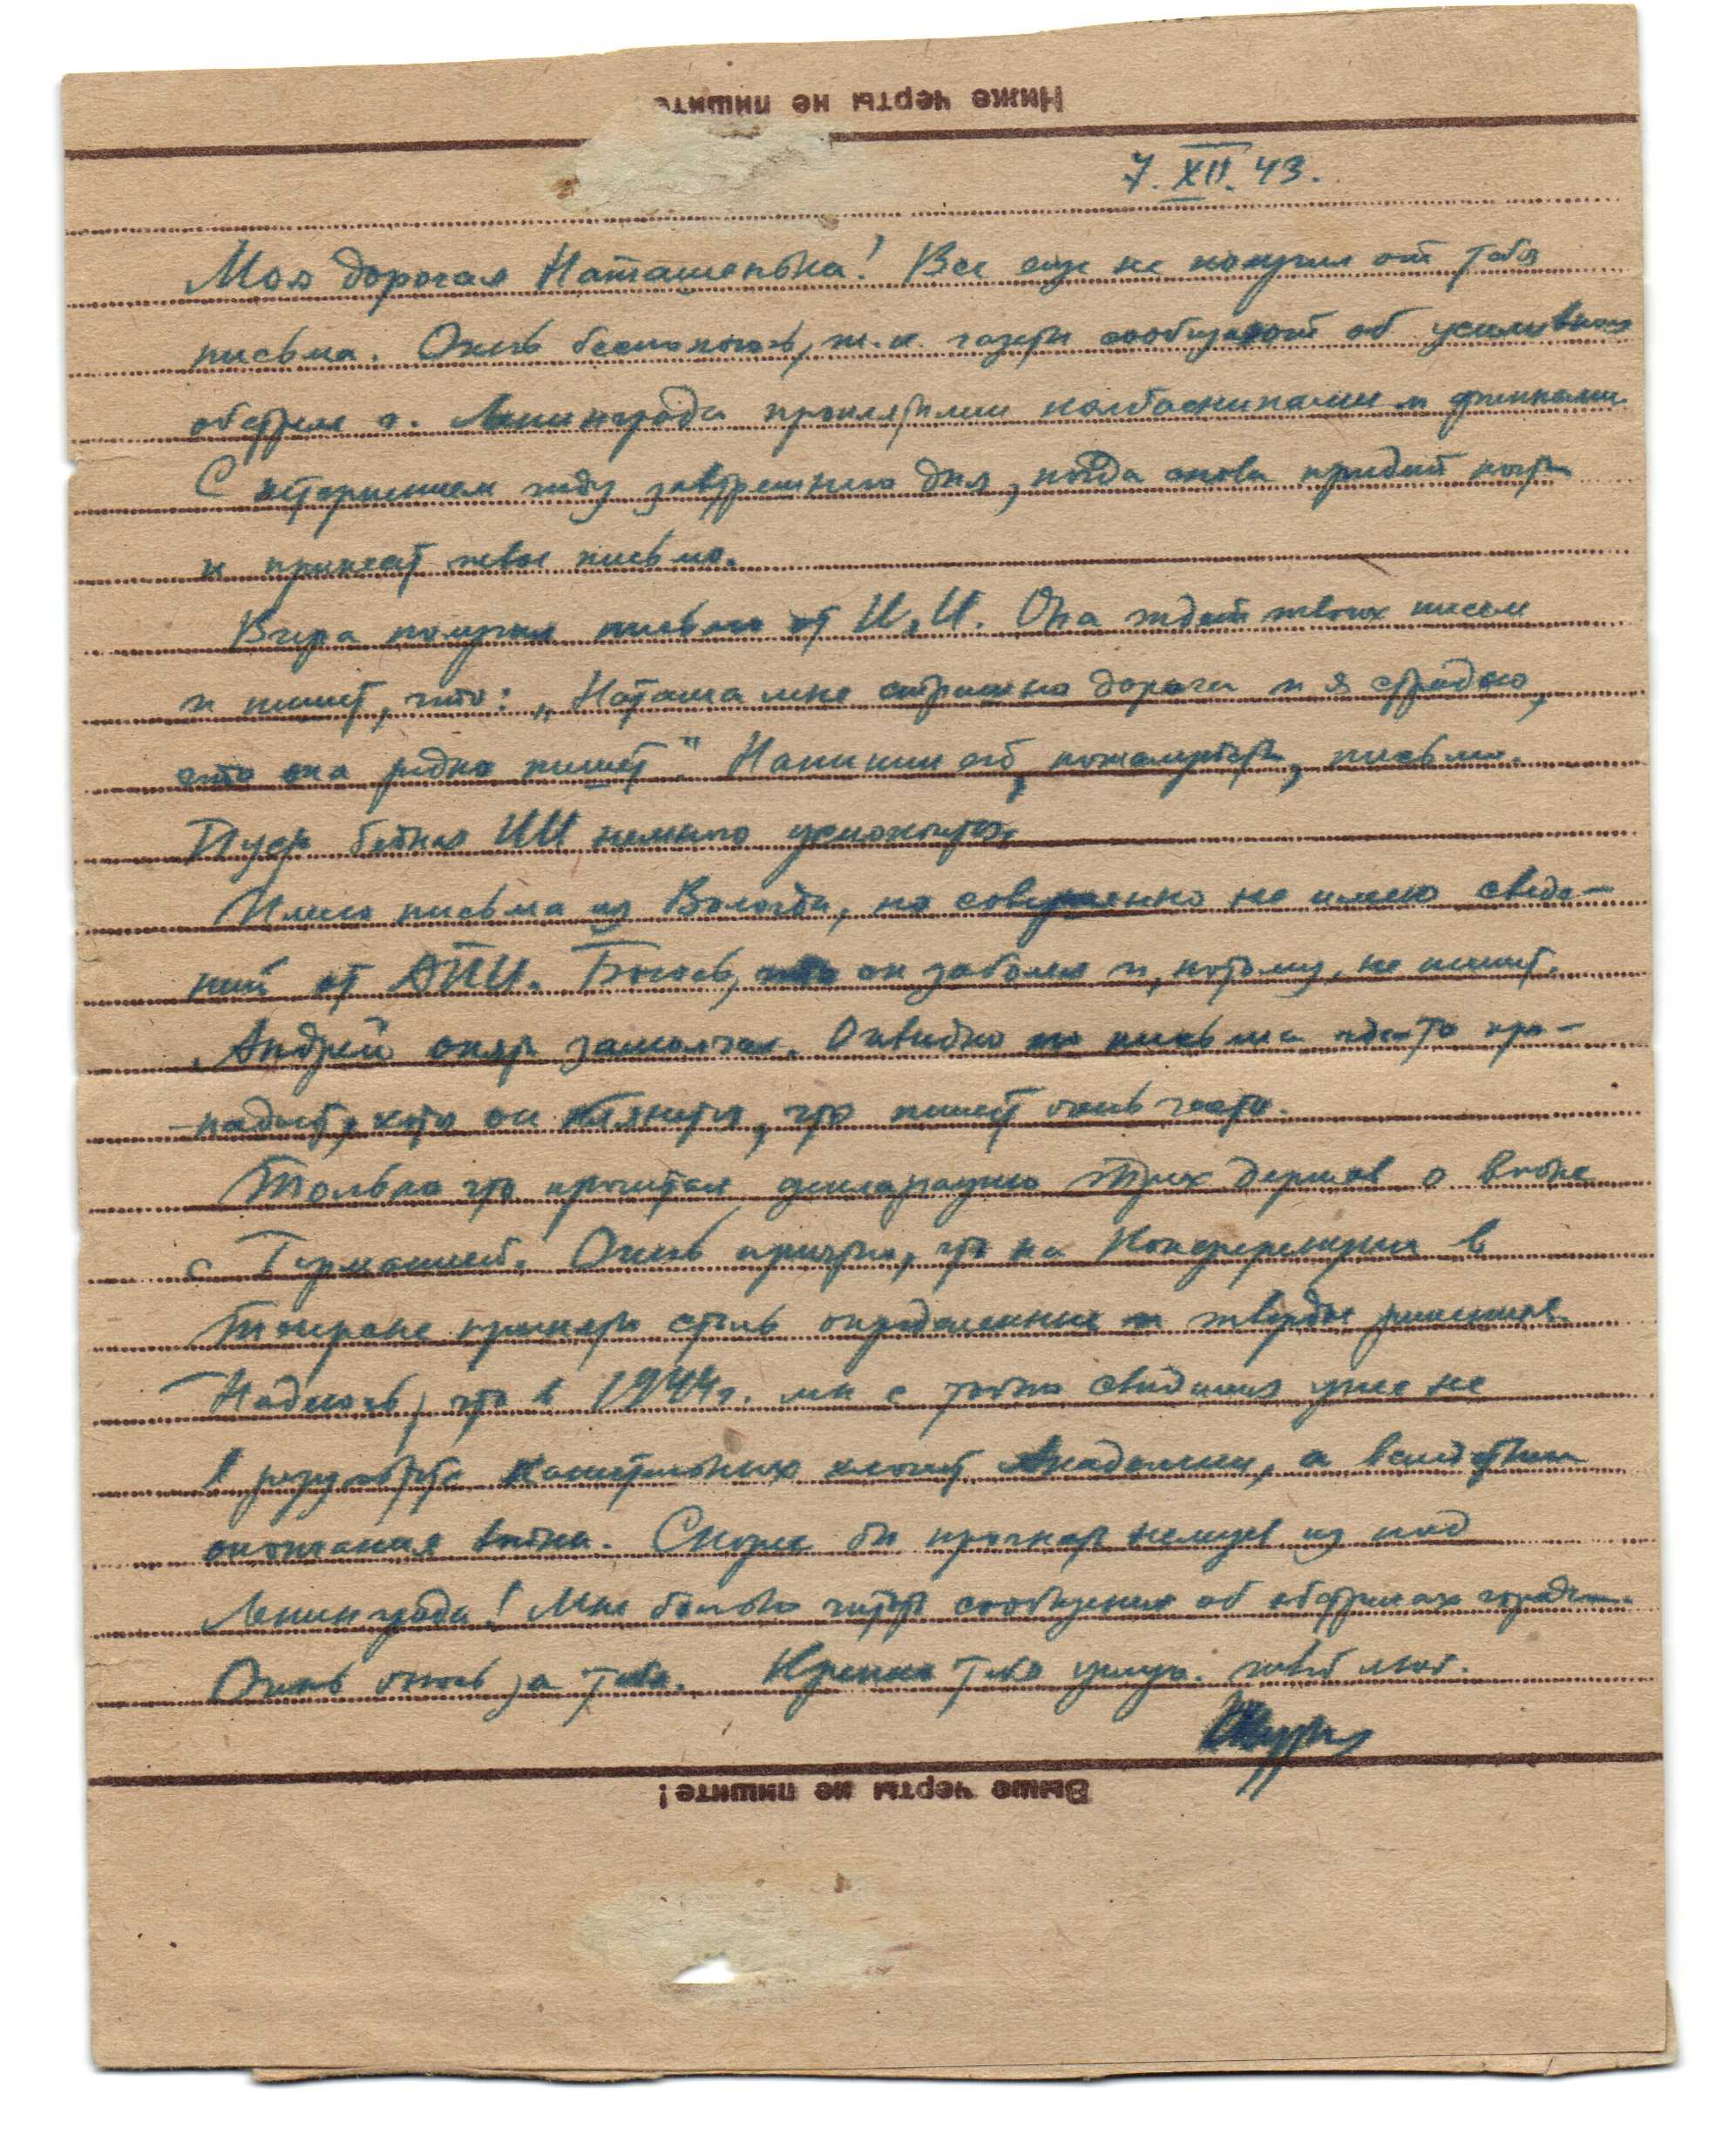 Ниже черты не пишите
7.XII.43.
Моя дорогая Наташенька! Все еще не получил от тебя
письма. Очень беспокоюсь, т.к. газеты сообщают об усиленном
обстреле г. Ленинграда проклятыми колбасниками и финнами.
С нетерпением жду завтрашнего дня, когда снова придет почта
и принесет твое письмо.
Вчера получил письмо от И.И. Она ждет твоих писем
и пишет, что: „Наташа мне страшно дорога и я страдаю,
что она редко пишет". Напиши ей, пожалуйста, письмо.
Пусть бедная ИИ немного успокоится.
Имею письма из Вологды, но совершенно не имею сведе-
ний от АПИ. Боюсь, что он заболел и, потому, не пишет.
Андрей опять замолчал. Очевидно письма где-то про-
-падают, хотя он клянется, что пишет очень часто.
Только что прочитал декларацию трех держав о войне
с Германией. Очень приятно, что на Конференции в
Тегеране приняты столь определенные и твердые решения.
Надеюсь, что в 1944г. мы с тобой свидимся уже не
в результате хлопот Академии, а вследствие
окончания войны. Скорее бы прогнать немцев из под
Ленинграда! Мне больно читать сообщения об обстрелах города.
Очень боюсь за тебя. Крепко тебя целую. твой люб.
Выше черты не пишите!